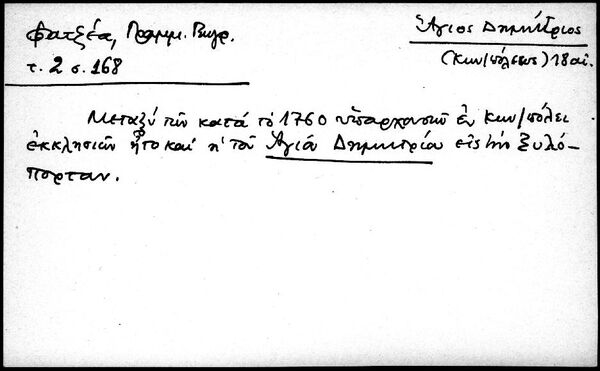 Φατζέα, Γραμμ. Βυζ.
τ. 2 σ. 168
Ἅγιος Δημήτριος
(Κων/πόλεως) 18 αἰ.
Μεταξύ τῶν κατά τό 1760 ὑπαρχουσῶν ἐν Κων/πόλει
ἐκκλησιῶν ἦτο καί ἡ τοῦ Ἁγίά Δημητρία εἰς τήν Ξυλό-
πορταν.